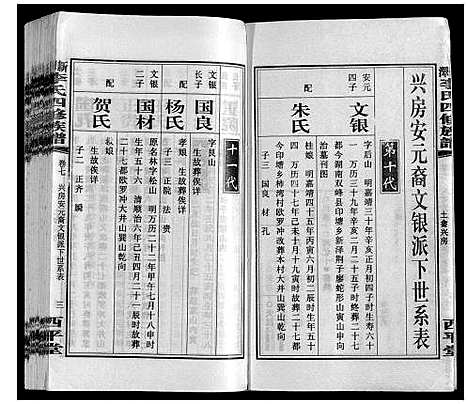 兴房安元裔文银派下世系表
李氏四修族谱
土斋兴房
西平堂
第十代
安元
四子
文银
字后山 明嘉靖三十年辛亥正月初四子时生寿六十
一 万历三十九年辛亥二月二十一子时终葬二十七
都今湖南双峰县印塘乡新泽荆子廖蛇形山寅山申向
配
朱氏
桂娘 明嘉靖四十五年丙寅六月初二辰时生年五十
四 万历四十七年己未十月十九寅时故葬二十七都
今印塘乡柿湾老欧罗冲改葬本村大井山巽山乾向
子三 国良 材 孔
十一代
文银
长子
国良
字良山
生故葬俟详
配
杨氏
孝娘 生故葬俟详
子三 正院 法 贵
文银
二子
国材
原名林字松山 明万历二十二年甲午七月十八申时
生年五十六 清顺治六年己丑四月二十一辰时故葬
二十七都欧罗冲大井山巽山乾向
配
贺氏
生故葬俟详
子二 正齐
李氏四修族谱
卷七 兴房安元裔文银派下世系表
三
西平堂